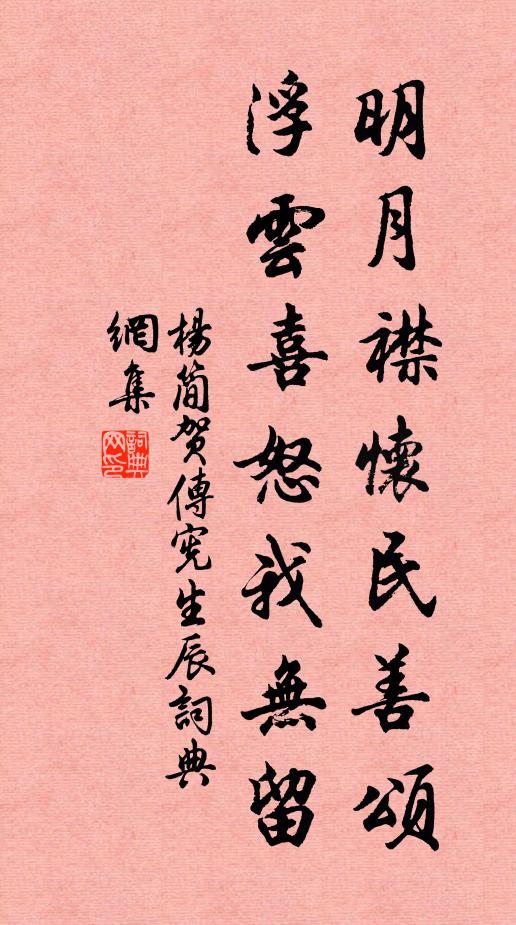 明月襟懷民善頌
浮雲喜怒我無留
楊簡賀傅憲生辰詞典
網集
詞典網印